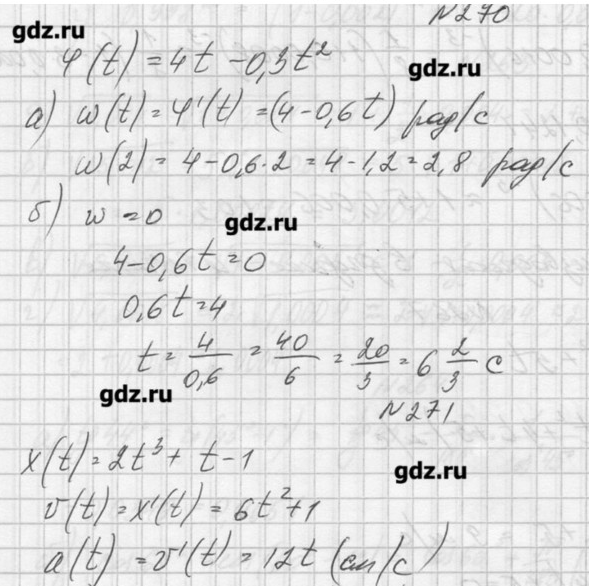 N270
gdz.ru
φ(t) = 4t - 0,3t²
gdz.ru
а) w(t) = φ'(t) = (4 - 0,6t) рад/с
w(2) = 4 - 0,6·2 = 4 - 1,2 = 2,8 рад/с
б) w = 0
gdz.ru
4 - 0,6t = 0
0,6t = 4
t = 4/0,6 = 40/6 = 20/3 = 6 2/3 с
gdz.ru
N271
x(t) = 2t³ + t - 1
gdz.ru
v(t) = x'(t) = 6t² + 1
a(t) = v'(t) = 12t (см/с)